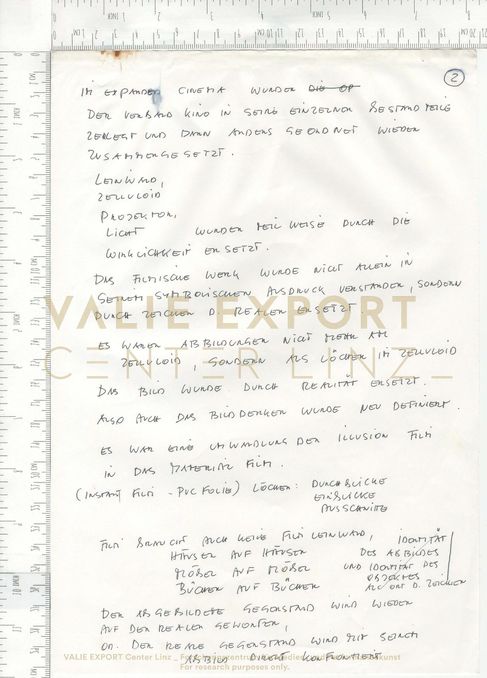 2
IM EXPANDED CINEMA WURDEN DIE OP
DER VERBAND KINO IN SEINE EINZELNEN BESTANDTEILE
ZERLEGT UND DANN ANDERS GEORDNET WIEDER
ZUSAMMENGESETZT.
LEINWAND,
ZELLULOID
PROJEKTOR,
LICHT WURDEN TEILWEISE DURCH DIE
WIRKLICHKEIT ERSETZT.
DAS FILMISCHE WERK WURDE NICHT ALLEIN IN
SEINEM SYMBOLISCHEN AUSDRUCK VERSTANDEN, SONDERN
DURCH ZEICHEN D. REALEN ERSETZT
VALIE EXPORT
CENTER LINZ_
ES WAREN ABBILDUNGEN NICHT MEHR AM
ZELLULOID, SONDERN ALS LÖCHER IM ZELLULOID
DAS BILD WURDE DURCH REALITÄT ERSETZT.
ALSO AUCH DAS BILDDENKEN WURDE NEU DEFINIERT.
ES WAR EINE UMWANDLUNG DER ILLUSION FILM
IN DAS MATERIAL FILM.
(INSTANT FILM - PVC FOLIE) LÖCHER: DURCHBLICKE
EINBLICKE
AUSSCHNITTE
FILM BRAUCHT AUCH KEINE FILMLEINWAND, IDENTITÄT
HÄUSER AUF HÄUSER DES ABBILDES
MÖBEL AUF MÖBEL UND IDENTITÄT DES
OBJEKTES
BÜCHER AUF BÜCHER ALS ORT D. ZEICHEN
DER ABGEBILDETE GEGENSTAND WIRD WIEDER
AUF DEN REALEN GEWORFEN,
OD. DER REALE GEGENSTAND WIRD MIT SEINEM
ABBILD DIREKT KONFRONTIERT
VALIE EXPORT Center Linz _ Forschungszentrum für Medien- und Performancekunst
For research purposes only.